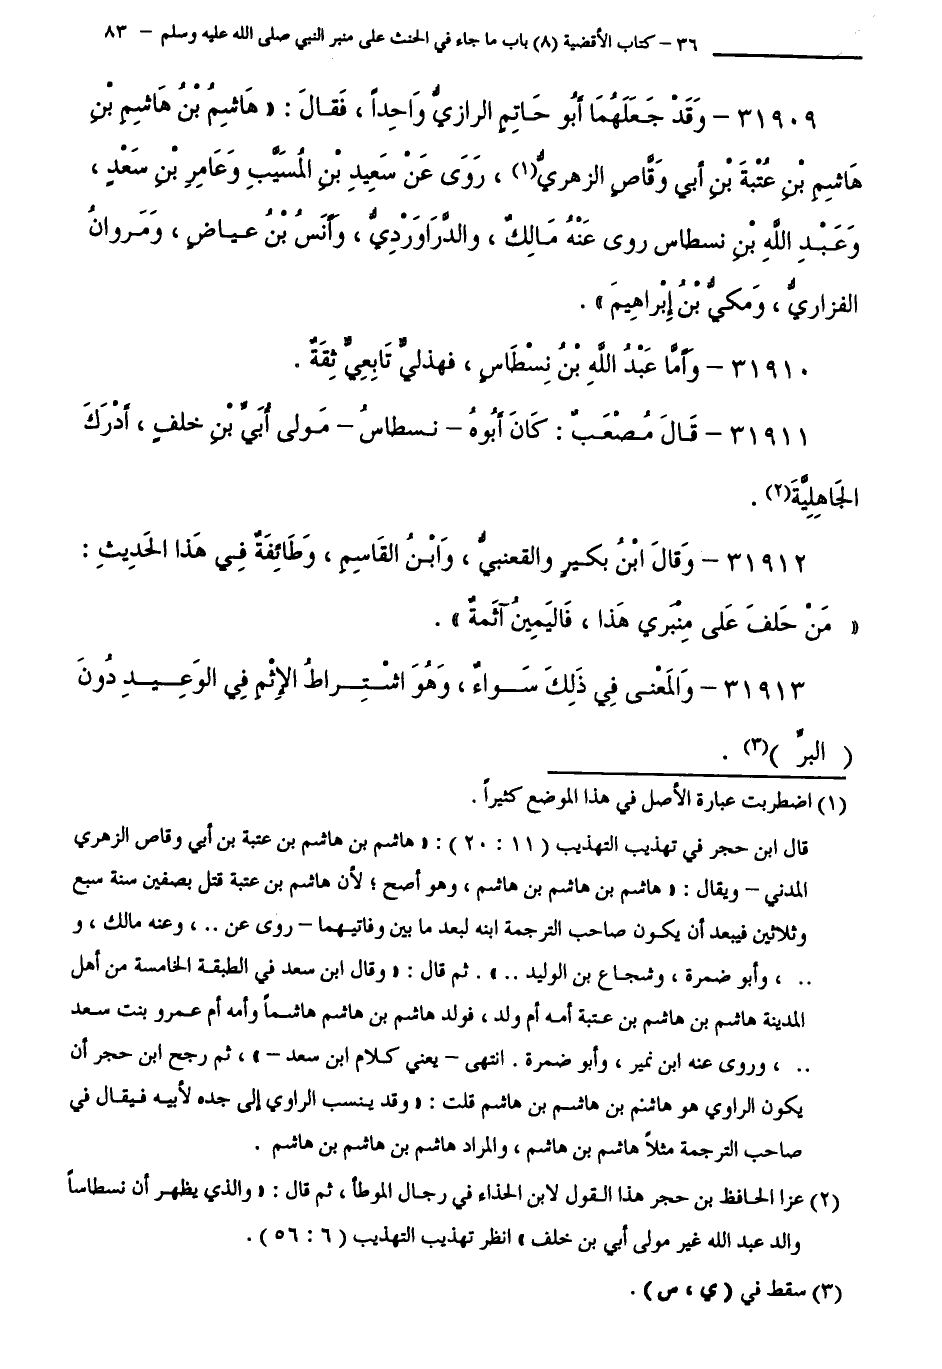 ٣٦ – كتاب الأقضية (٨) باب ما جاء في الحنث على منبر النبي صلى الله عليه وسلم – ٨٣
٣١٩٠٩ – وَقَدْ جَعَلَهُمَا أَبُو حَاتِمٍ الرازيُّ وَاحِداً ، فَقالَ : « هَاشِمُ بْنُ هَاشِمِ بْنِ
هَاشِمِ بْنِ عُتْبَةَ بْنِ أَبي وَقَّاصٍ الزهريُّ(١) ، رَوَى عَنْ سَعِيدِ بْنِ الْمُسَيَّبِ وَعَامِرِ بْنِ سَعْدٍ ،
وَعَبْدِ اللَّهِ بْنِ نسطاس روى عَنْهُ مَالكٌ ، والدَّرَاوَرْدِيُّ ، وَأَنَسُ بْنُ عياضٍ ، وَمَروانُ
الفزاريُّ ، وَمَكيُّ بْنُ إِبْراهِيمَ » .
٣١٩١٠ – وَأَمَّا عَبْدُ اللَّهِ بْنُ نِسْطَاسٍ ، فهذليٌّ تَابِعِيٌّ ثِقَةٌ .
٣١٩١١ – قَالَ مُصْعَبٌ : كَانَ أَبُوهُ – نسطاسُ – مَولى أُبَيِّ بْنِ خلفٍ ، أَدْرَكَ
الجَاهِلِيَّةَ(٢) .
٣١٩١٢ – وَقالَ ابْنُ بكيرٍ والقعنبيُّ ، وَابْنُ القَاسِمِ ، وَطَائِفَةٌ فِي هَذا الحَدِيثِ :
« مَنْ حَلفَ عَلى مِنْبَرِي هَذا ، فَاليَمِينُ آثَمةٌ » .
٣١٩١٣ – وَالمَعْنى فِي ذَلِكَ سَواءٌ ، وَهُوَ اشْتِراطُ الإِثْمِ فِي الوَعِيدِ دُونَ
( البرِّ )(٣) .
(١) اضطربت عبارة الأصل في هذا الموضع كثيراً .
قال ابن حجر في تهذيب التهذيب ( ١١ : ٢٠ ) : « هاشم بن هاشم بن عتبة بن أبي وقاص الزهري
المدني – ويقال : « هاشم بن هاشم بن هاشم ، وهو أصح ؛ لأن هاشم بن عتبة قتل بصفين سنة سبع
وثلاثين فيبعد أن يكون صاحب الترجمة ابنه لبعد ما بين وفاتيهما – روى عن .. ، وعنه مالك ، و
.. ، وأبو ضمرة ، وشجاع بن الوليد .. » . ثم قال : « وقال ابن سعد في الطبقة الخامسة من أهل
المدينة هاشم بن هاشم بن عتبة أمه أم ولد ، فولد هاشم بن هاشم هاشماً وأمه أم عمرو بنت سعد
.. ، وروى عنه ابن نمير ، وأبو ضمرة . انتهى – يعني كلام ابن سعد – » ، ثم رجح ابن حجر أن
يكون الراوي هو هاشم بن هاشم بن هاشم قلت : « وقد ينسب الراوي إلى جده لأبيه فيقال في
صاحب الترجمة مثلاً هاشم بن هاشم ، والمراد هاشم بن هاشم بن هاشم .
(٢) عزا الحافظ بن حجر هذا القول لابن الحذاء في رجال الموطأ ، ثم قال : « والذي يظهر أن نسطاساً
والد عبد الله غير مولى أبي بن خلف » انظر تهذيب التهذيب ( ٦ : ٥٦ ) .
(٣) سقط في ( ي ، س ) .